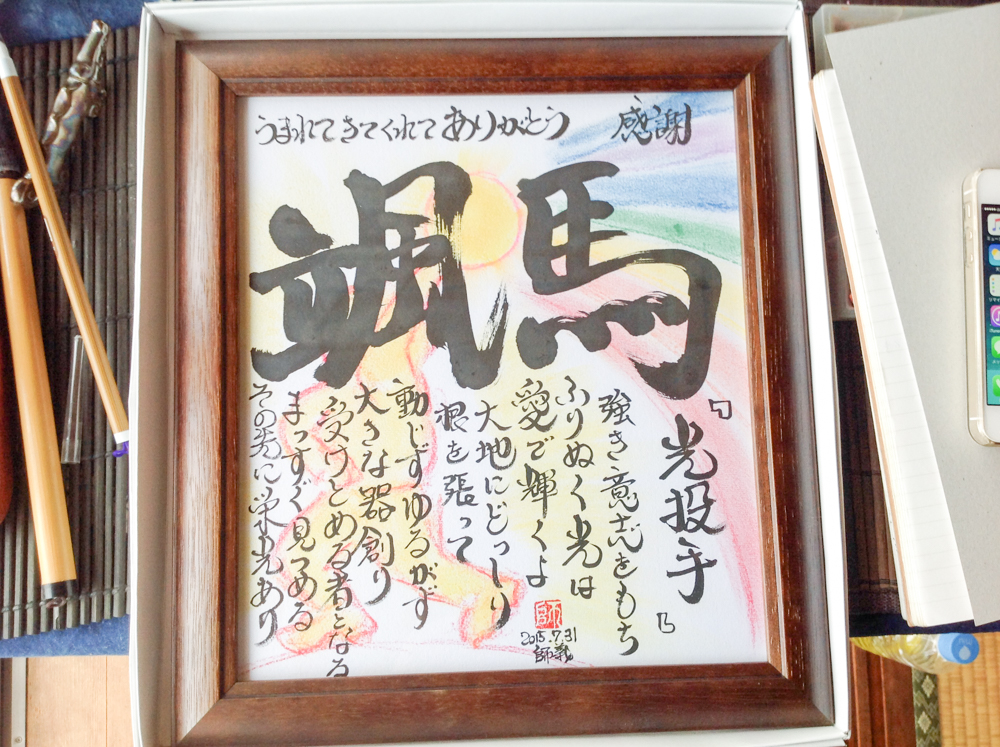 うまれてきてくれてありがとう 感謝
颯馬
『光投手』
強き意志をもち
ふりぬく光は
愛で輝くよ
大地にどっしり
根を張って
動じずゆるがず
大きな器創り
受けとめる者となる
まっすぐ見つめる
その先に栄光あり
師
2015.7.31